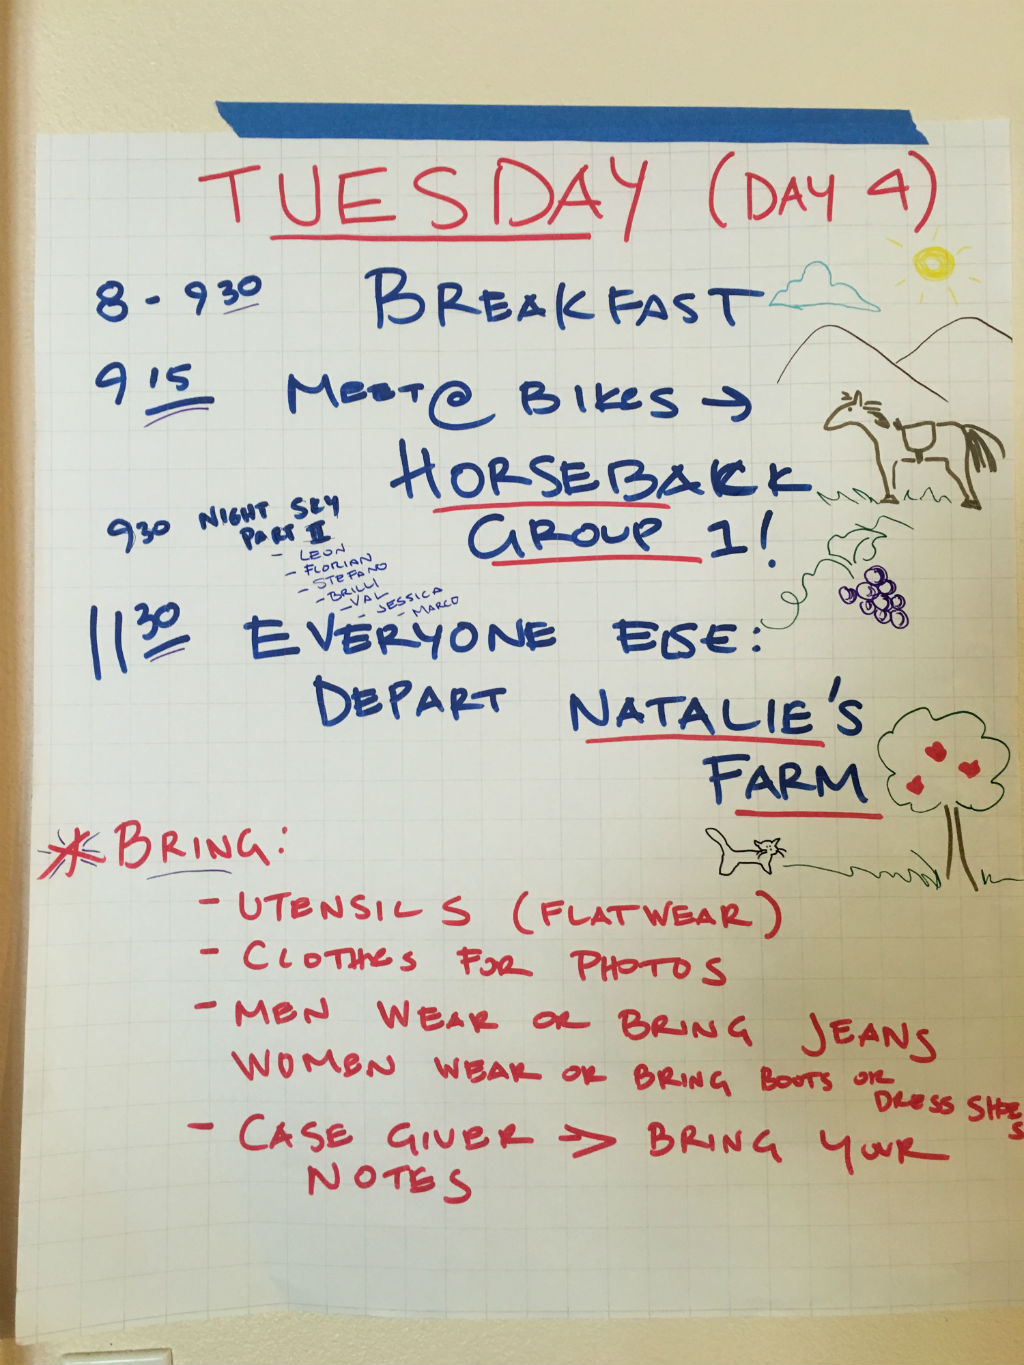 TUESDAY (DAY 4)
8 - 9 30 BREAKFAST
9 15 MEET @ BIKES →
HORSEBACK
GROUP 1!
930 NIGHT SKY
PART II
- LEON
- FLORIAN
- STEFANO
- BRILLI
- VAL
- JESSICA
- MARCO
11 30 EVERYONE ELSE:
DEPART NATALIE'S
FARM
* BRING:
- UTENSILS (FLATWEAR)
- CLOTHES FOR PHOTOS
- MEN WEAR OR BRING JEANS
WOMEN WEAR OR BRING BOOTS OR
DRESS SHOES
- CASE GIVER → BRING YOUR
NOTES